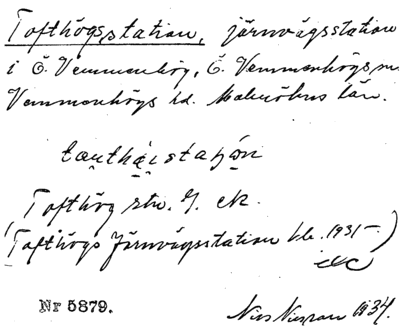 Tofthögsstation, järnvägsstation
i Ö. Vemmenhög, Ö. Vemmenhögs sn.
Vemmenhögs hd. Malmöhus län.
Tofthög strv. G. ek.
(Tofthögs Järnvägsstation 1931-)
Nr 5879.
Nils Nilsson 1934.